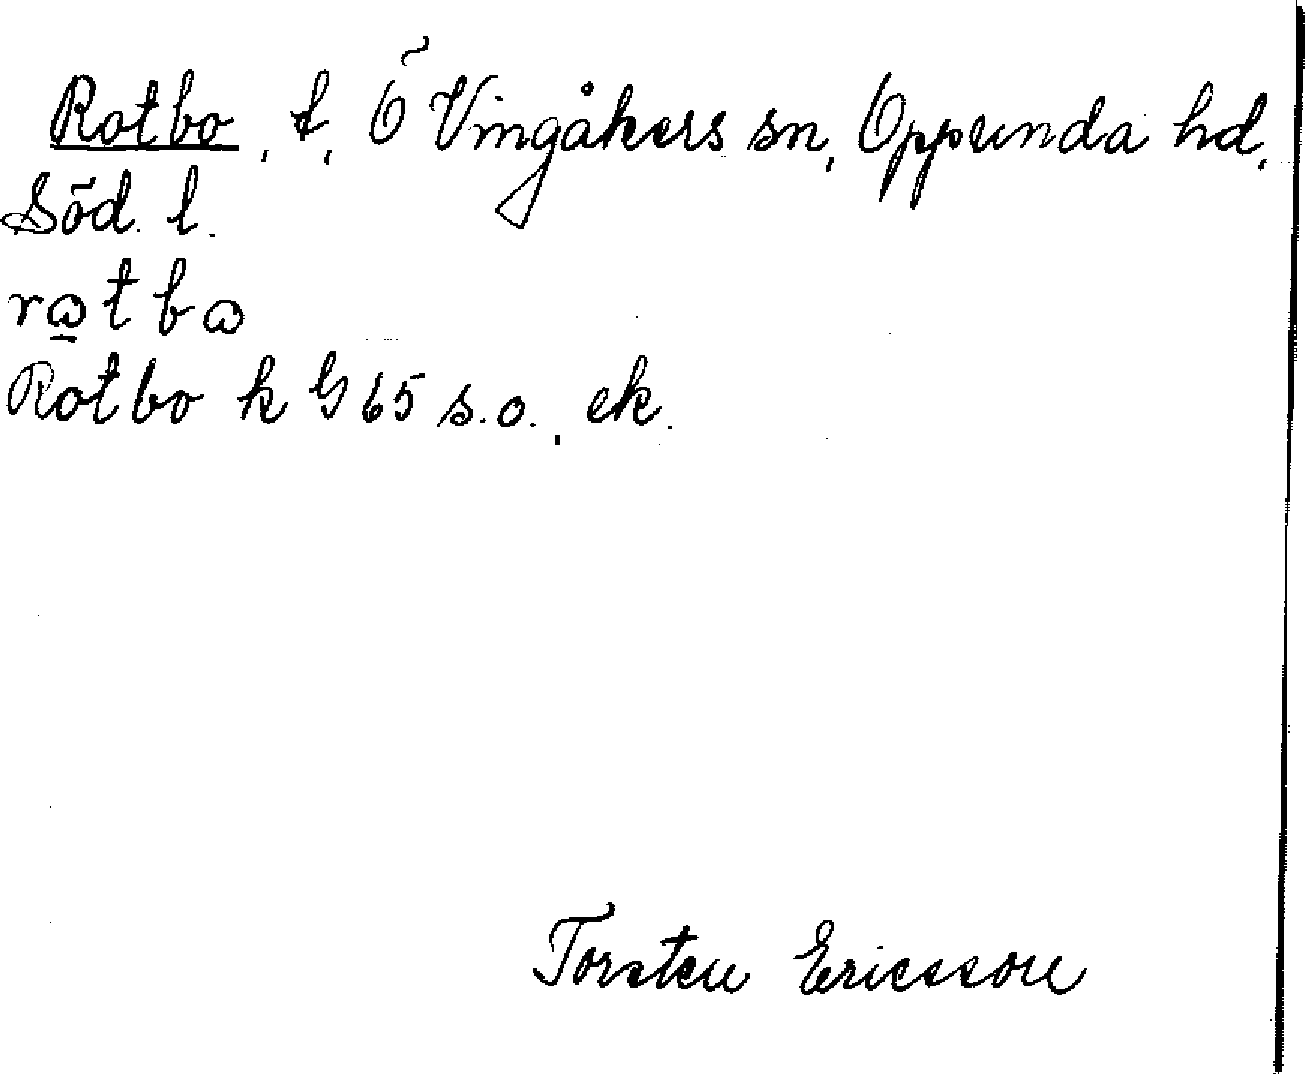 Rotbo, t, Ö Vingåkers sn, Oppunda hd,
Söd. l.
rɷ̠tbɷ
Rotbo k G 65 s.o., ek.
Torsten Ericsson